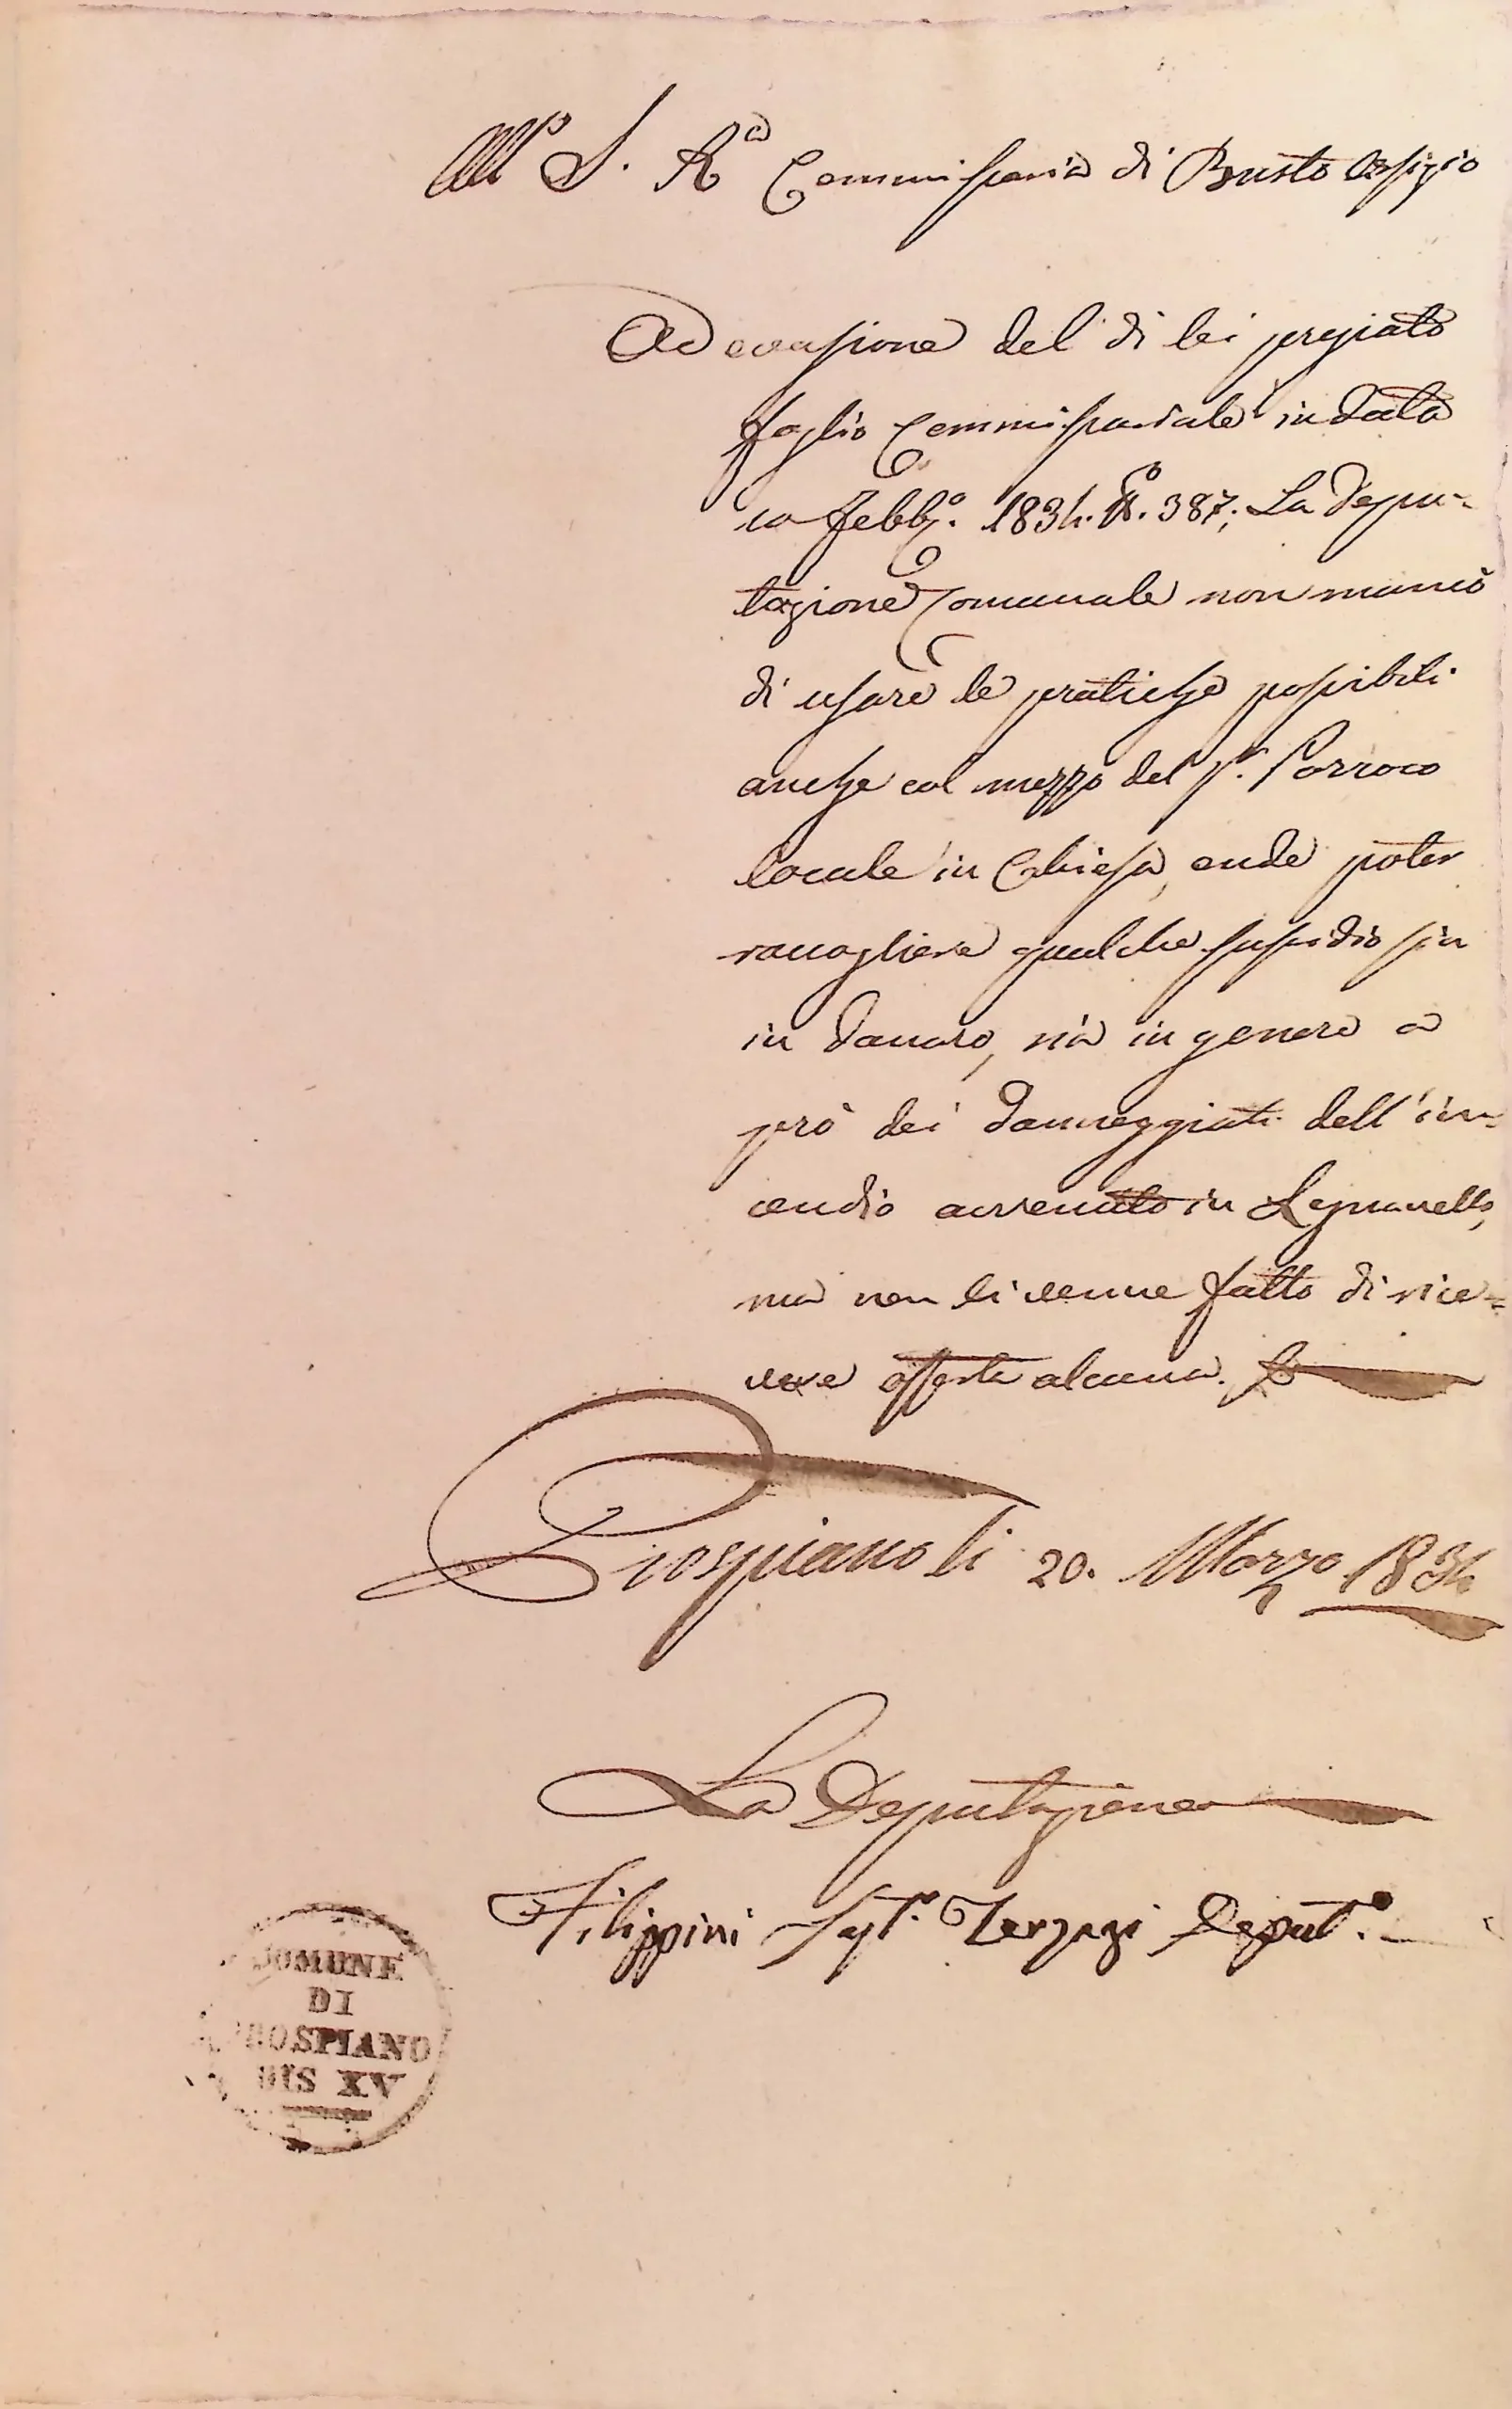 All' I. R.a Commissaria di Busto Arsizio
Ad evasione del di lei pregiato
foglio Commissariale in data
10 Febb.o 1834. N.o 387; La Depu-
tazione Comunale non mancò
di usare le pratiche possibili
anche col mezzo del S.r Parroco
locale in Chiesa, onde poter
raccogliere qualche sussidio sia
in danaro, sia in genere a
prò dei danneggiati dell'in-
cendio avvenuto in Legnanello,
ma non li venne fatto di rice-
vere offerta alcuna.
Prospiano li 20. Marzo 1834
La Deputazione
Filippini Terzagi Deput.o
COMUNE
DI
PROSPIANO
DIS XV